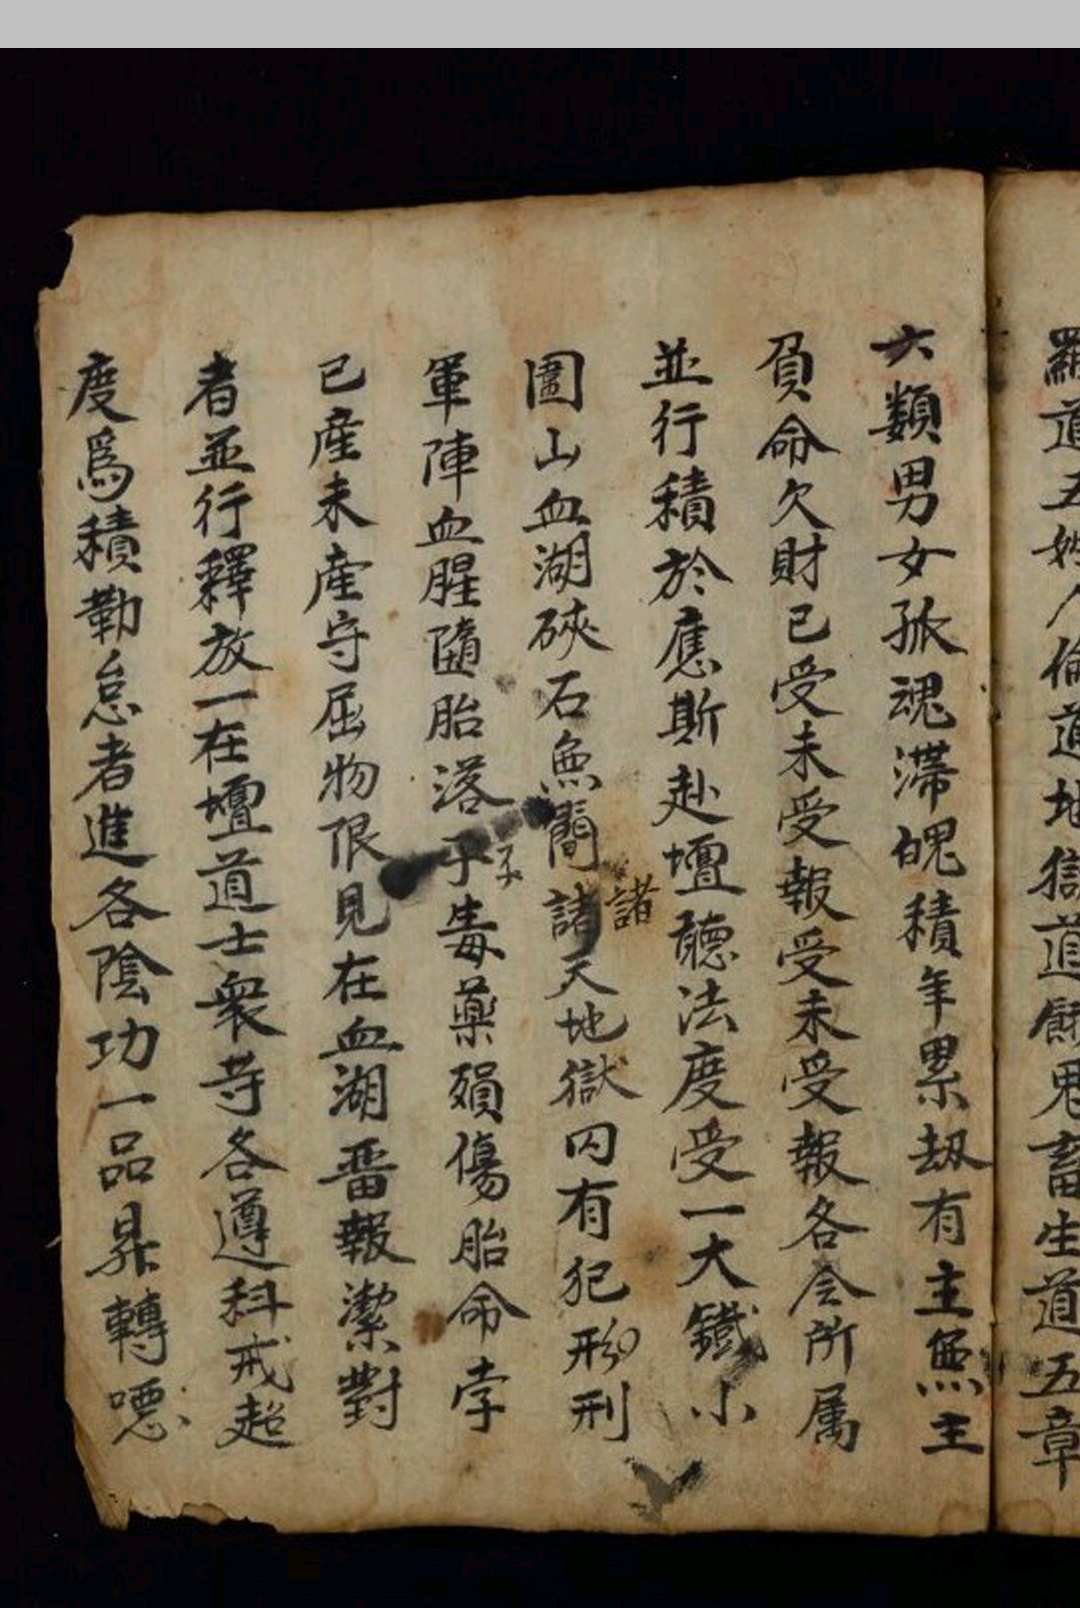 羅道五姓人倫道地獄道餓鬼畜生道五章
六類男女孤魂滯魄積年累刼有主無主
負命欠財已受未受報受未受報各令所属
並行積於應斯赴壇聽法度受一大鐵小
圍山血湖硤石無間諸天地獄囚有犯形刑
諸
軍陣血腥隨胎落子毒藥殞傷胎命李
子
已產未產守屈物限見在血湖畨報潔對
者並行釋放一在壇道士衆等各遵科戒超
度爲積勤怠者進各陰功一品昇轉